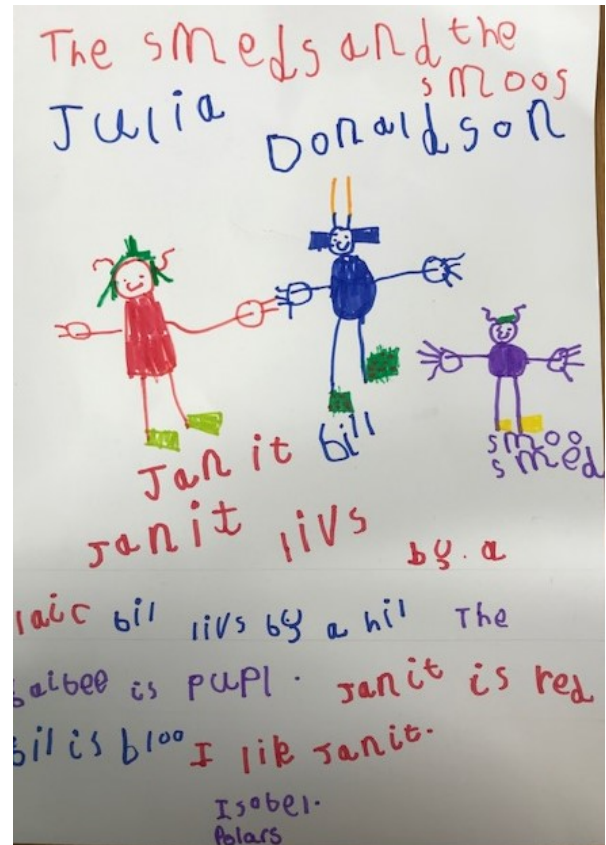 The smeds and the
smoos
Julia Donaldson
Janit bill
smoo
smed
Janit livs by. a
laic bil livs by a hil The
baibee is pupl. Janit is red
bil is bloo I lik Janit.
Isabel.
Polars